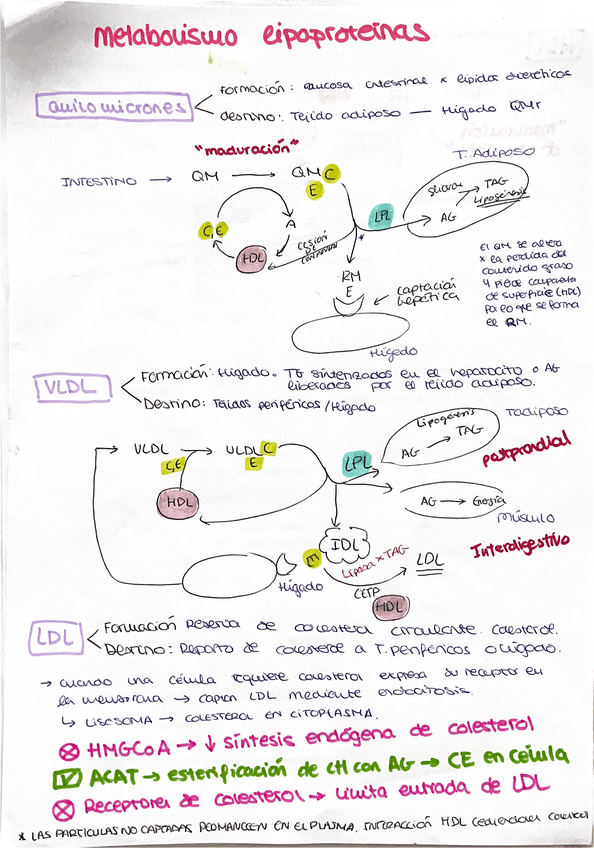 Metabolismo lipoproteinas
quilomicrones
Formación: mucosa intestinal x lipidos dieteticos
destino: Tejido adiposo — Hígado QMr
"maduración"
INTESTINO → QM → QM C
E
T. Adiposo
TAG
Lipogenesis
AG
LPL
C,E
A
HDL
cesión
DE
RM
E
captación
hepática
Hígado
El QM se altera
x la perdida del
contenido graso
y pierde
de superficie (HDL)
por lo que se forma
el QRM.
VLDL
Formación: Hígado. TG sintetizados en el hepatocito o AG
liberados por el tejido adiposo.
Destino: Tejidos periféricos / Hígado
VLDL → VLDL C
C,E
E
HDL
LPL
Lipogenesis
AG → TAG
T adiposo
postprandial
AG → Energía
Músculo
Interdigestivo
IDL
E
Lipasa x TAG
LDL
CETP
HDL
Hígado
LDL
Formación Reserva de colesterol circulante. Colesterol.
Destino: Reparto de colesterol a T. periféricos o hígado.
→ cuando una célula requiere colesterol expresa su receptor en
la membrana → captan LDL mediante endocitosis.
↳ LISOSOMA → COLESTEROL EN CITOPLASMA.
HMGCoA → ↓ síntesis endógena de colesterol
ACAT → esterificación de cHl con AG → CE en célula
Receptores de colesterol → Limita entrada de LDL
* LAS PARTICULAS NO CAPTADAS PERMANECEN EN EL PLASMA. INTERACCIÓN HDL